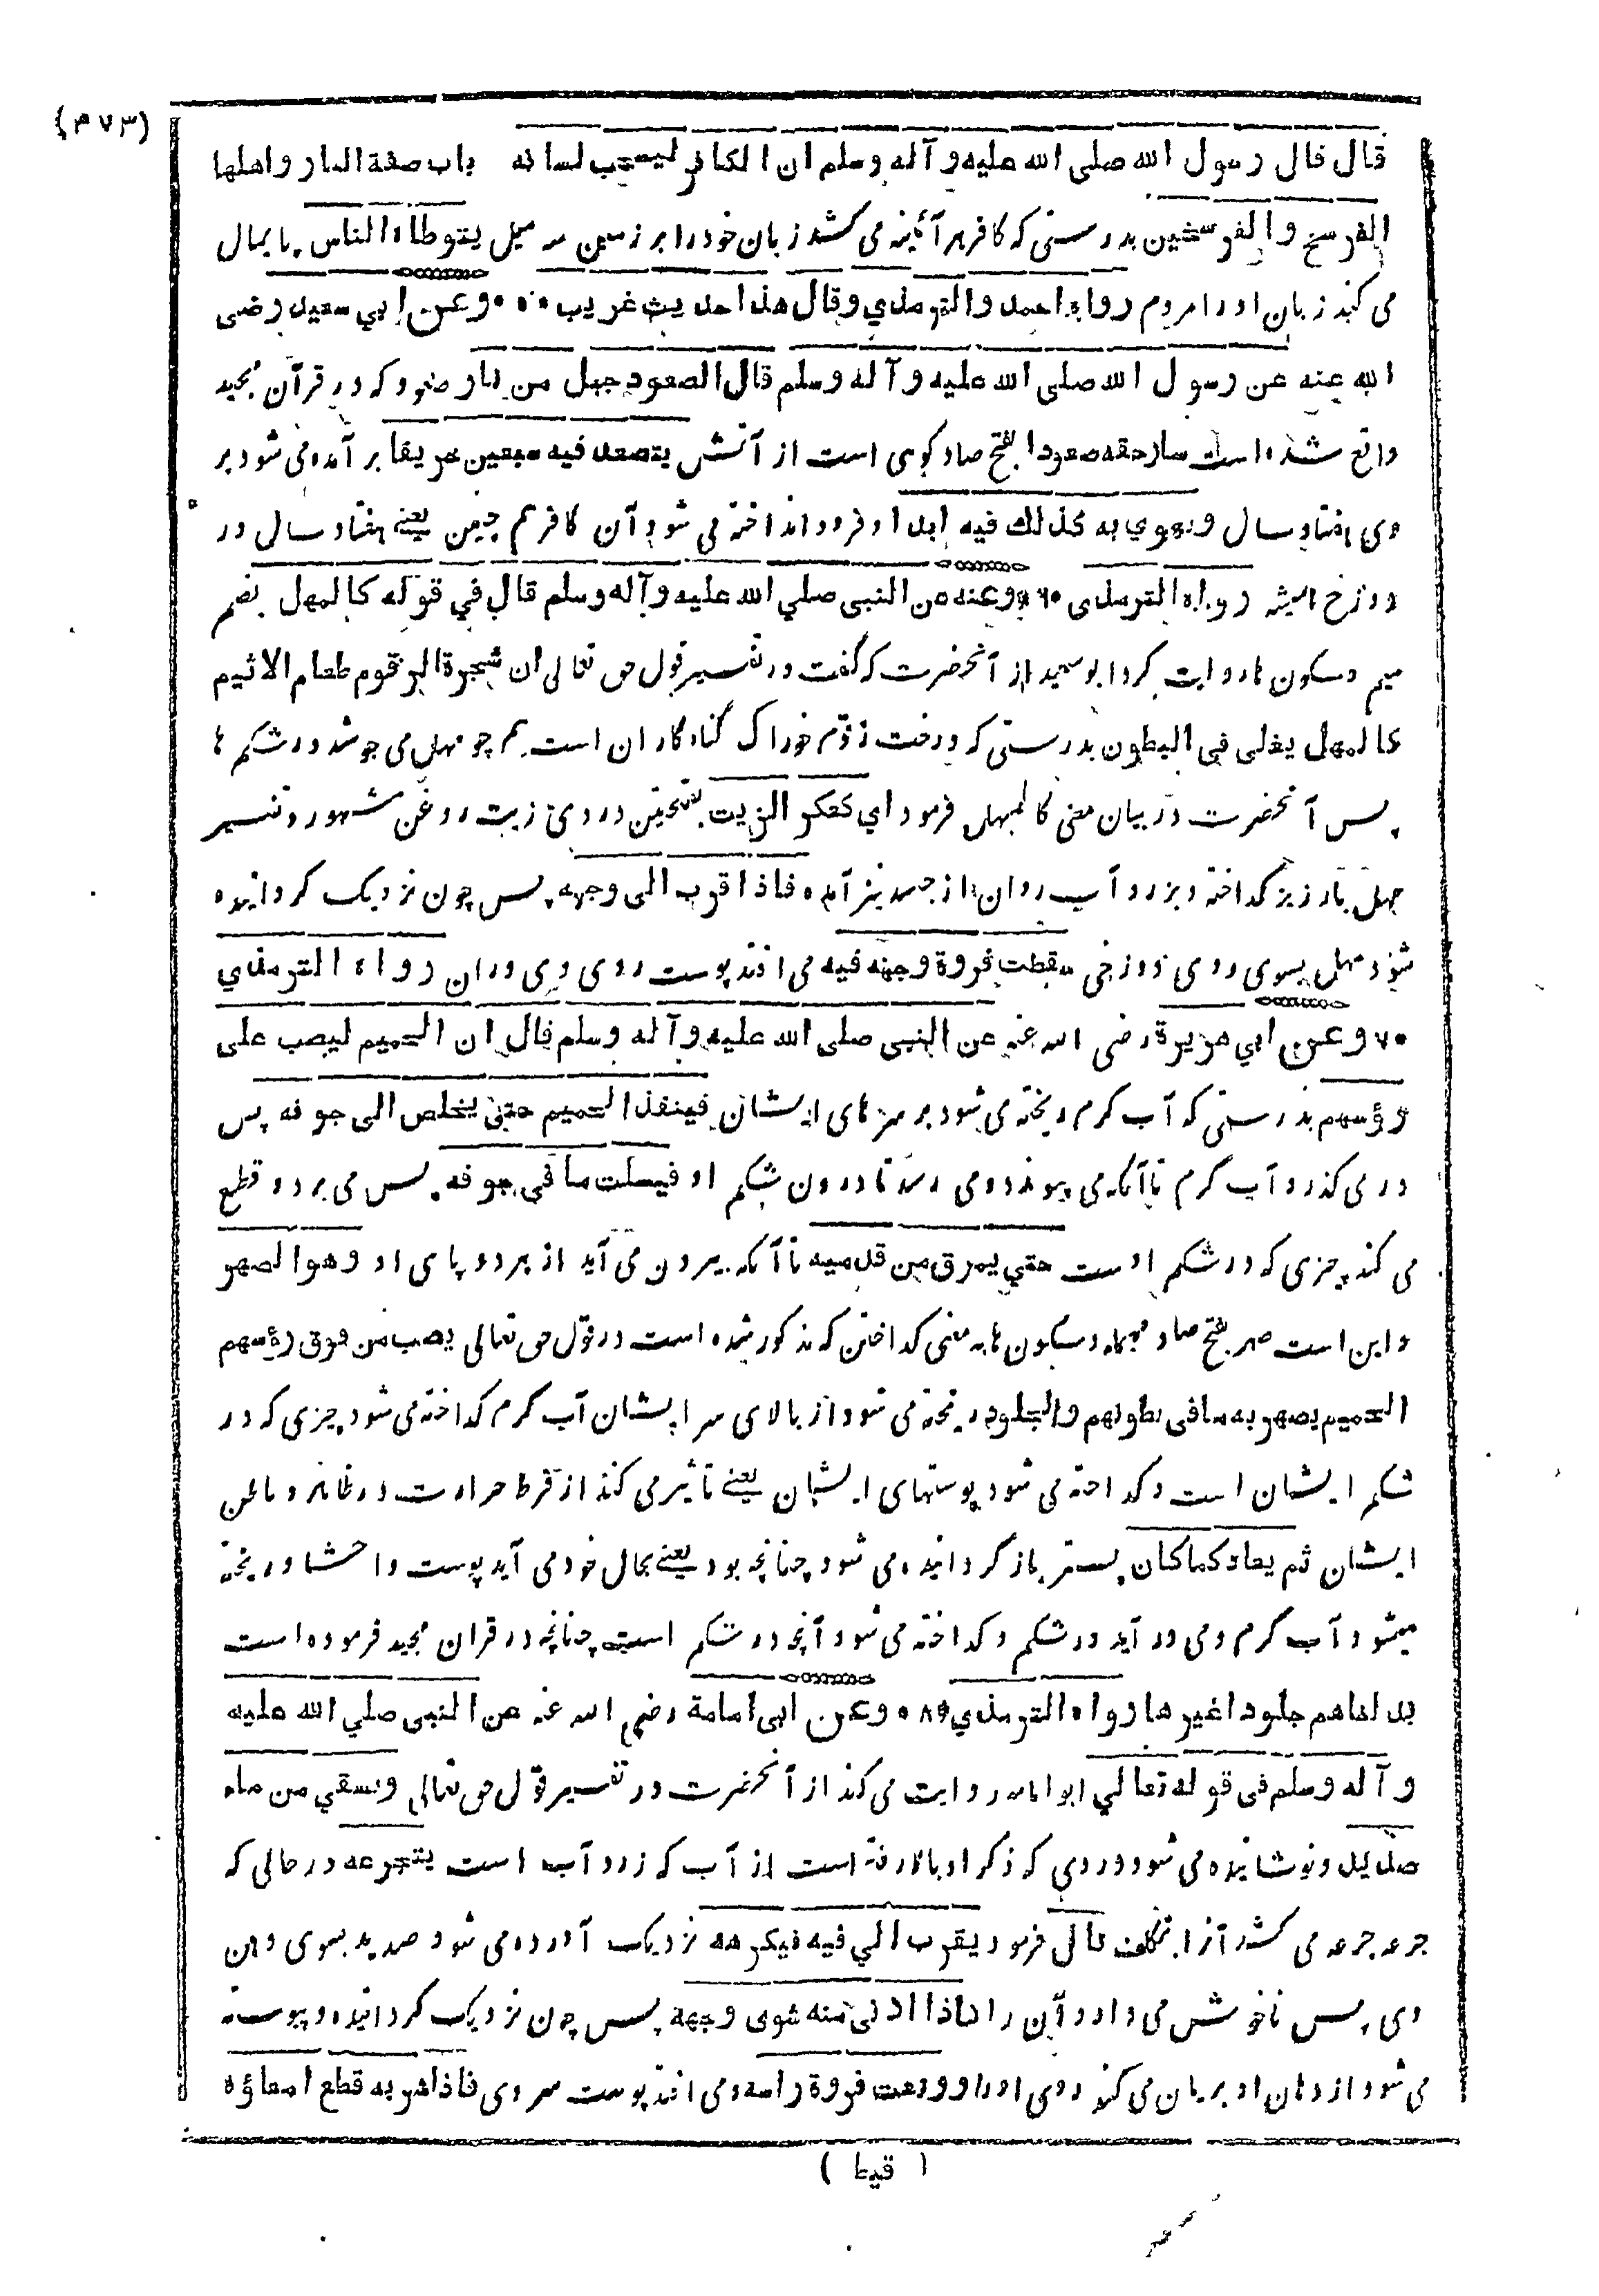 (۴۷۳)
قال قال رسول الله صلى الله عليه وآله وسلم ان الكافر ليسحب لسانه باب صفة النار واهلها
الفرسخ والفرسخين بدرستی که کافر هر آئینه می کشد زبان خود را بر زمین سه میل يتوطاه الناس پایمال
می کند زبان او را مردم رواه احمد والترمذي وقال هذا حديث غريب ٥٠ وعن ابي سعيد رضى
الله عنه عن رسول الله صلى الله عليه وآله وسلم قال الصعود جبل من نار صعود که در قرآن مجید
واقع شده است سارهقه صعودا بفتح صاد کوهی است از آتش يتصعد فيه سبعين خريفا بر آمده می شود بر
وی هفتاد سال ويهوي به كذلك فيه ابدا و فرود انداخته می شود آن کافر هم چنین یعنے هفتاد سال در
دوزخ همیشه رواه الترمذى ٦٠ وعنه عن النبى صلي الله عليه وآله وسلم قال في قوله كالمهل بضم
میم و سکون ها روایت کرد ابو سعید از آنحضرت که گفت در تفسیر قول حق تعالی ان شجرة الزقوم طعام الاثيم
كالمهل يغلى في البطون بدرستی که درخت زقوم خوراک گناه گاران است هم چو مهل می جوشد در شکم ها
پس آنحضرت در بیان معنی کالمهل فرمود اي كعكر الزيت بفتحتین دردی زیت روغن مشهور و تفسیر
مهل بار زیز گداخته و بزرد آب روان از جسد نیز آمده فاذا قرب الى وجهه پس چون نزدیک گردانیده
شود مهل بسوی روی دوزخی سقطت فروة وجهه فيه می افتد پوست روی وی در آن رواه الترمذي
٧٠ وعن ابي هريرة رضى الله عنه عن النبى صلى الله عليه وآله وسلم قال ان الحميم ليصب على
رؤسهم بدرستی که آب گرم ریخته می شود بر سرهای ایشان فينفذ الحميم حتى يخلص الى جوفه پس
در می گذرد آب گرم تا آنکه می پیوندد و می رسد تا درون شکم او فيسلت ما في جوفه پس می برد و قطع
می کند چیزی که در شکم اوست حتي يمرق من قدميه تا آنکه بیرون می آید از هر دو پای او وهو الصهر
و این است صهر بفتح صاد مهمله و سکون ها به معنی گداختن که مذکور شده است در قول حق تعالی يصب من فوق رؤسهم
الحميم يصهر به ما فى بطونهم والجلود ریخته می شود از بالای سر ایشان آب گرم گداخته می شود چیزی که در
شکم ایشان است و گداخته می شود پوستهای ایشان یعنے تاثیر می کند از فرط حرارت در ظاهر و باطن
ایشان ثم يعاد كما كان پستر باز گردانیده می شود چنانچه بود یعنے بحال خود می آید پوست و احشا و ریخته
میشود آب گرم و می در آید در شکم و گداخته می شود آنچه در شکم است چنانچه در قران مجید فرموده است
بدلناهم جلودا غيرها رواه الترمذي ٨٠ وعن ابى امامة رضي الله عنه عن النبى صلي الله عليه
وآله وسلم فى قوله تعالي ابو امامه روایت می کند از آنحضرت در تفسیر قول حق تعالی ويسقي من ماء
صديد و نوشانیده می شود دوزخی که ذکر او بالا رفته است از آب که زرد آب است يتجرعه در حالی که
جرعه جرعه می کشد آنرا بتکلف قال فرمود يقرب الي فيه فيكرهه نزدیک آورده می شود صدید بسوی دهن
وی پس ناخوش می دارد آن را فاذا ادنى منه شوى وجهه پس چون نزدیک گردانیده و پیوسته
می شود از دهان او بریان می کند روی او را ووقعت فروة راسه و می افتد پوست سر وی فاذا شربه قطع امعاؤه
( قيط )